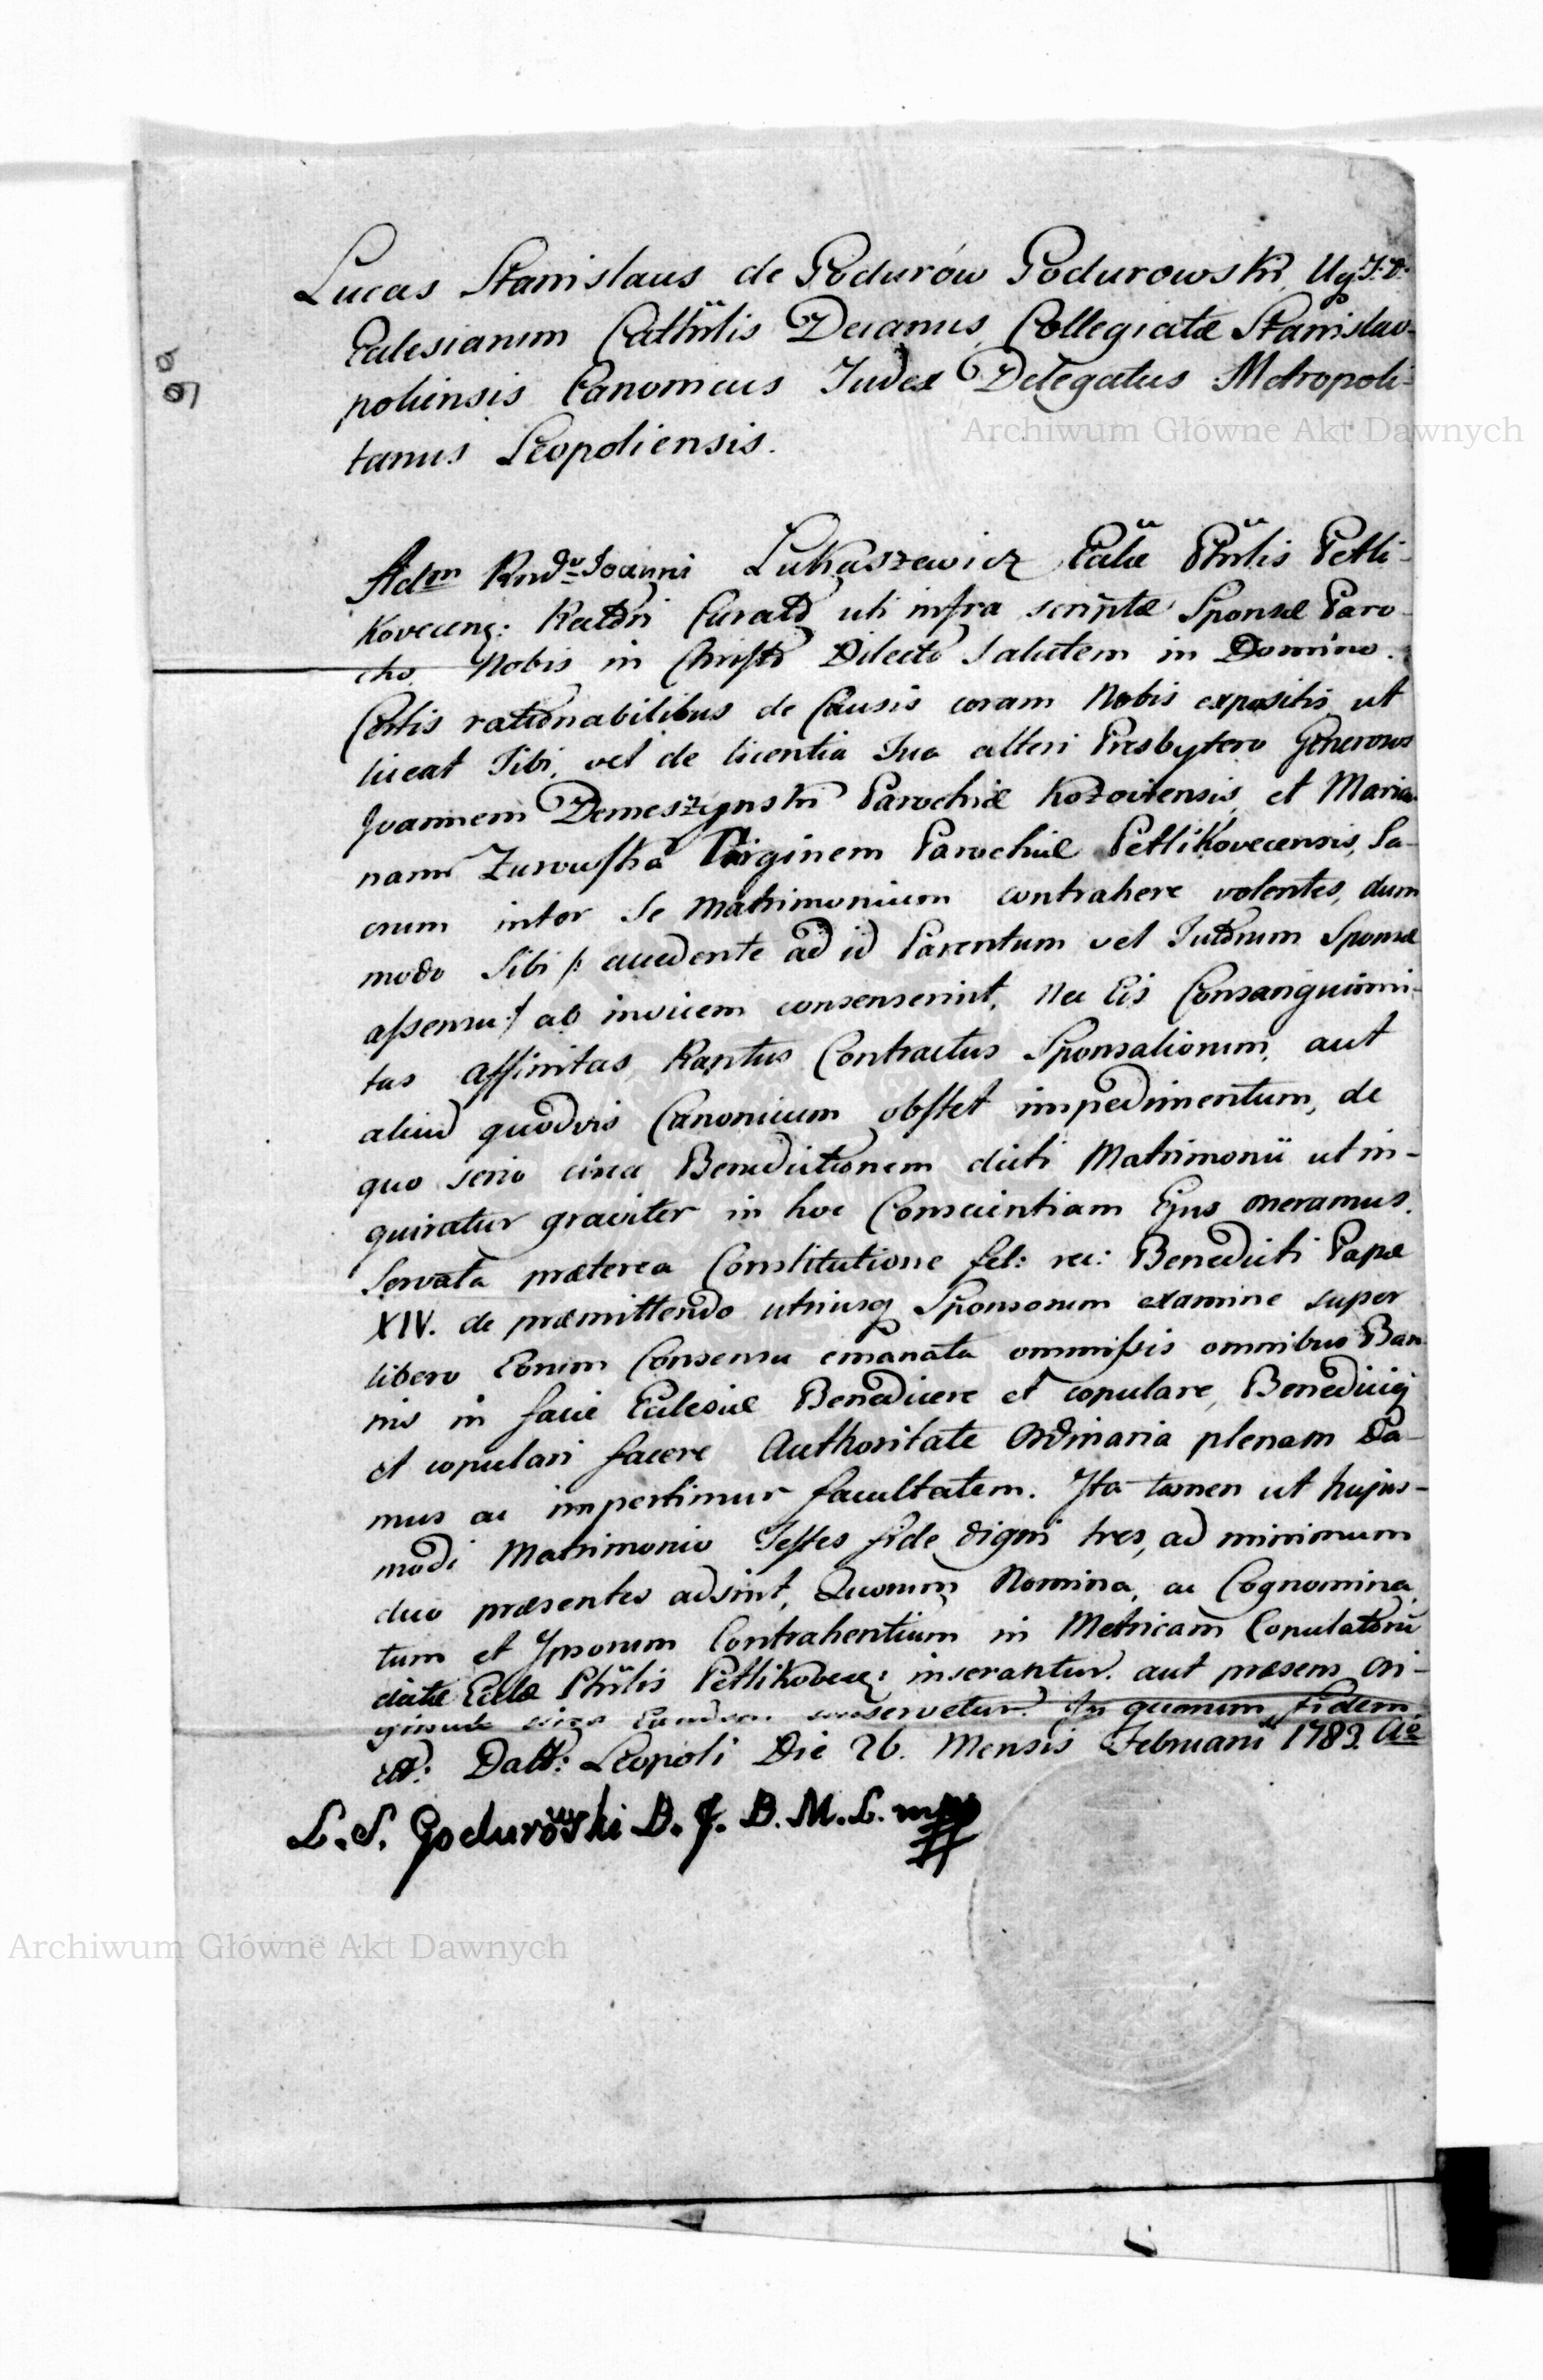 Lucas Stanislaus de Podurów Podurowski, U. J. D.
Eclesiarum Cathlis Decanus, Collegiatæ Stanislao-
poliensis Canonicus Judex Delegatus Metropoli-
tanus Leopoliensis.
99
Archiwum Główne Akt Dawnych
Adm Rndo Joanni Łukaszewicz Eclæ Phlis Petli-
kovecens: Rectori Curato uti infra scriptæ Sponsæ Paro-
cho, Nobis in Christo Dilecto Salutem in Domino.
Certis rationabilibus de Causis coram Nobis expositis, ut
liceat Tibi, vel de licentia Tua alteri Presbytero Generosos
Joannem Demeszynski Parochiæ Kozoviensis, et Maria-
nam Zurowska Virginem Parochiæ Petlikovecensis, Sa-
crum inter Se Matrimonium contrahere volentes, dum
modo Sibi /: accedente ad id Parentum vel Tutorum Sponsæ
assensu :/ ab invicem consenserint, Nec Eis Consanguini-
tas Affinitas, Raptus Contractus Sponsaliorum, aut
aliud quodvis Canonicum obstet impedimentum, de
quo serio circa Benedictionem dicti Matrimonii ut in-
quiratur graviter in hoc Conscientiam Ejus oneramus.
Servata præterea Constitutione fel: rec: Benedicti Papæ
XIV. de præmittendo utriusq Sponsorum examine super
libero Eorum Consensu emanata ommissis omnibus Ban-
nis in facie Eclesiæ Benedicere et copulare, Benediciq
et copulari facere Authoritate Ordinaria plenam Da-
mus ac impertimur facultatem. Ita tamen ut hujus-
modi Matrimonio Testes fide digni tres, ad minimum
duo præsentes adsint, Quorum Nomina, ac Cognomina,
tum et Ipsorum Contrahentium in Metricam Copulatorũ
dictæ Eclæ Phlis Petlikovec: inserantur. aut præsens Ori-
ginale servetur. In quorum fidem
Datt: Leopoli Die 26. Mensis Februarii 1783. Ao
L. S. Podurowski D. J. D. M. L. mpp
Archiwum Główne Akt Dawnych